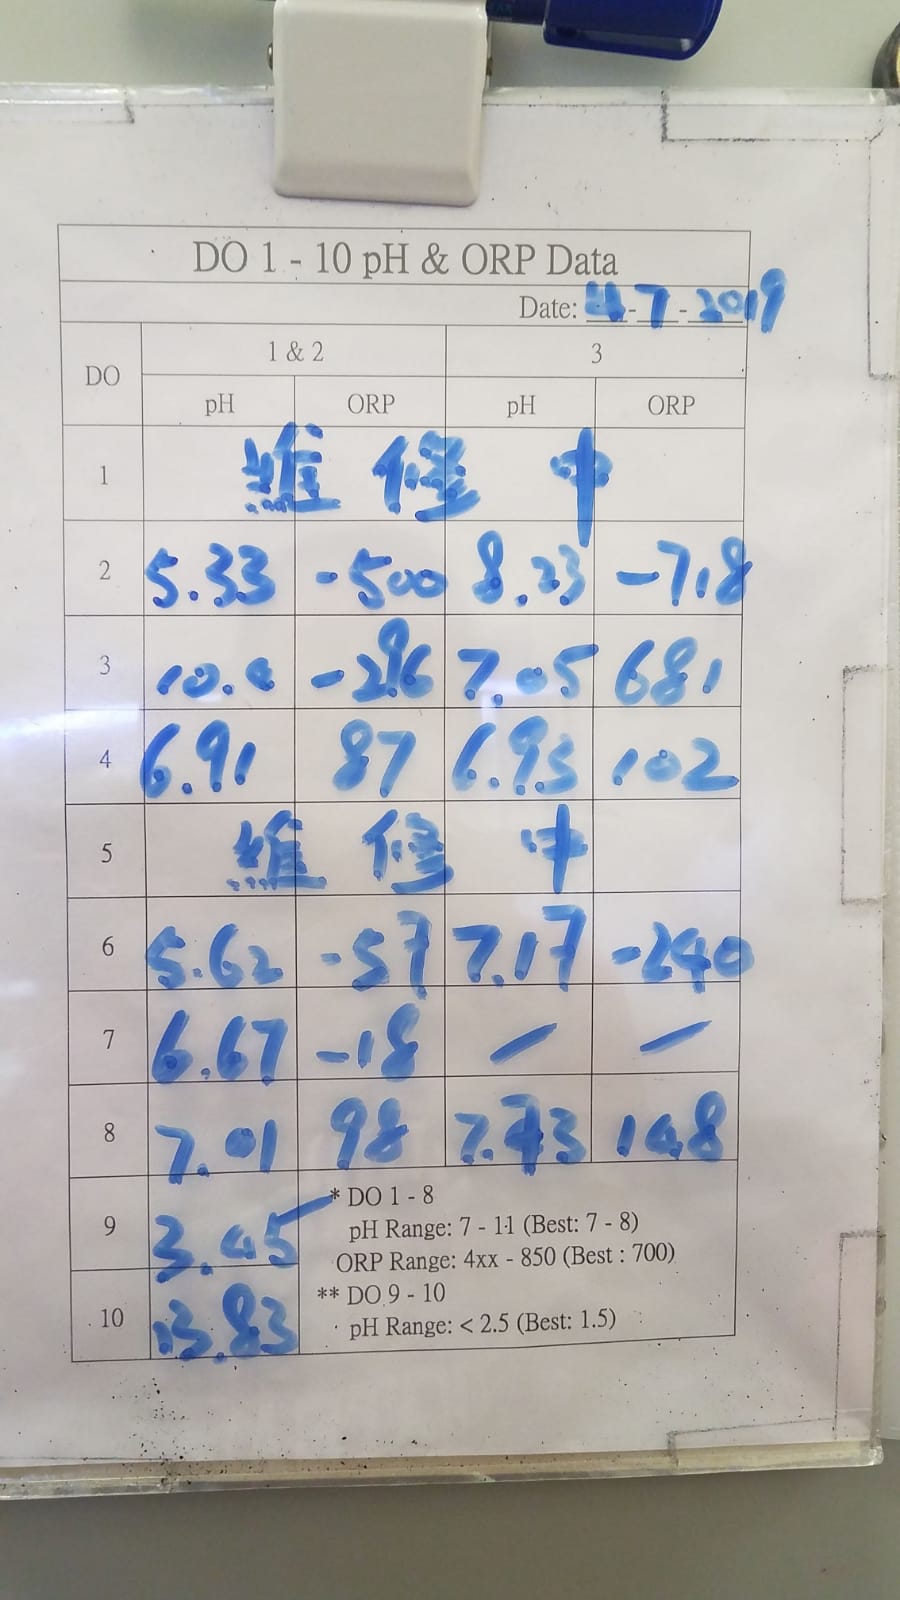 DO 1 - 10 pH & ORP Data
Date: 4-7-2019
DO 1 & 2 3
pH ORP pH ORP
1 維修中
2 5.33 -500 8.23 -7.8
3 -296 7.05 681
4 6.91 87 6.93 102
5 維修中
6 5.62 -57 7.17 -240
7 6.67 -18 — —
8 7.01 98 7.43 148
9 3.45
10 13.83
* DO 1 - 8
pH Range: 7 - 11 (Best: 7 - 8)
ORP Range: 4xx - 850 (Best : 700)
** DO 9 - 10
pH Range: < 2.5 (Best: 1.5)